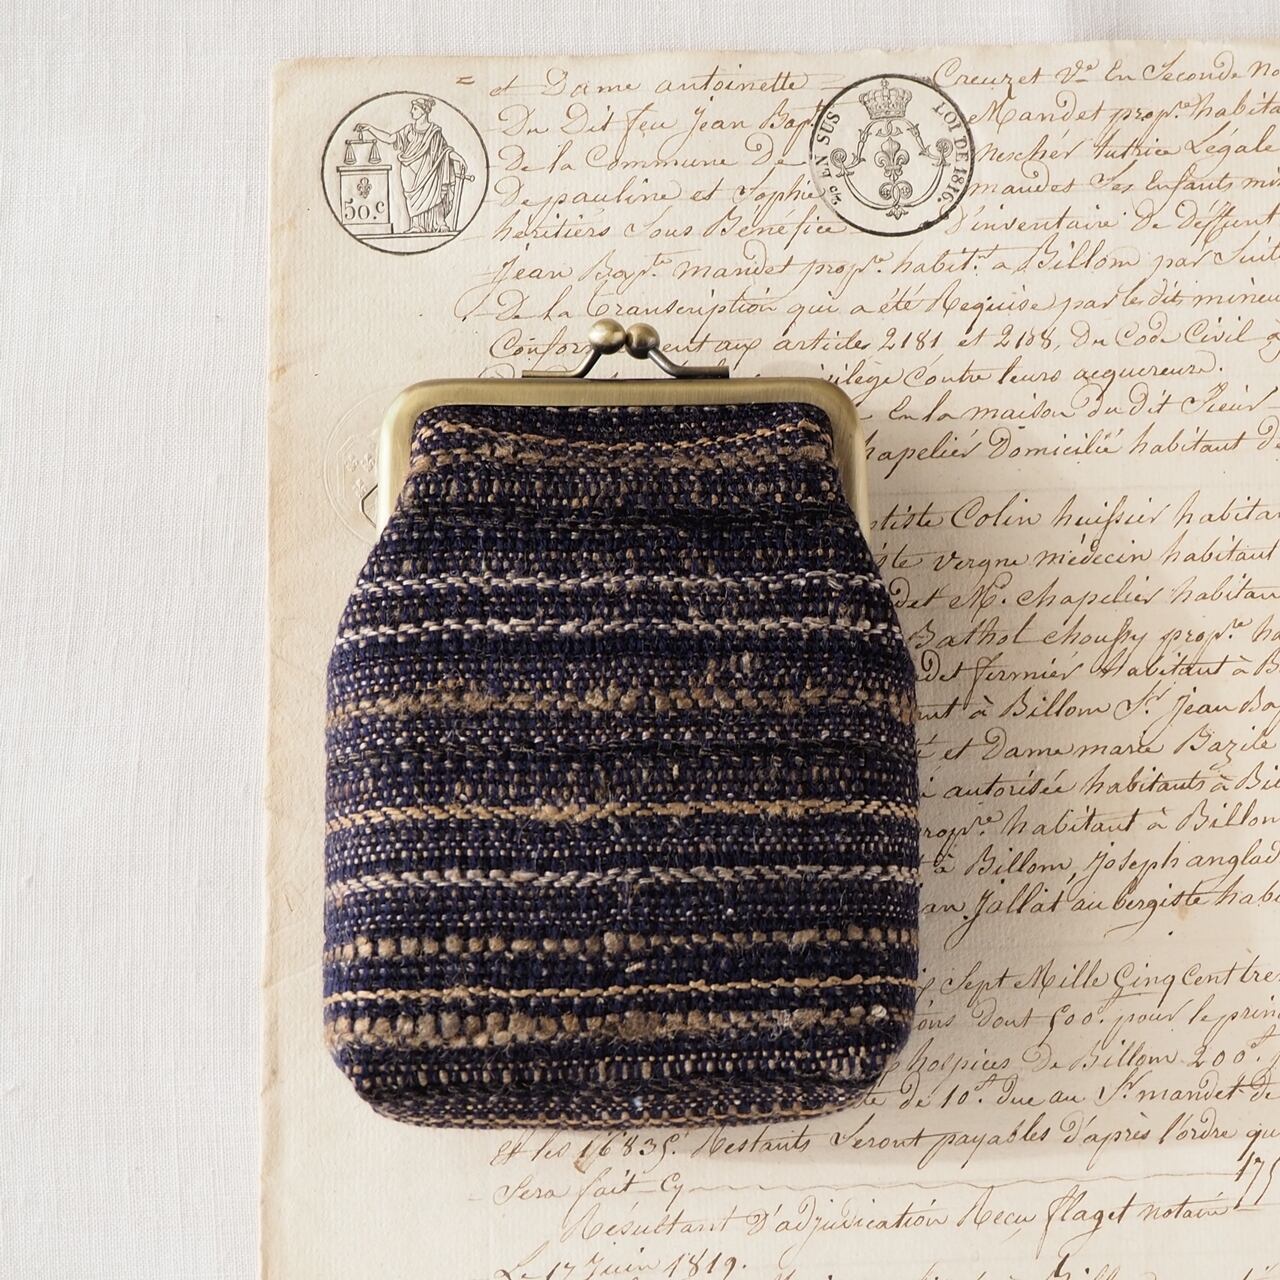 50.c
EN SUS
LOI DE 1816.
et Dame antoinette Creuzet Ve En Seconde No
Du Dit feu Jean Bapt Mandet propre habita
De la Commune De tutrice Légale
De pauline et Sophie mandet Ses Enfants min
héritiers Sous Bénéfice D'inventaire De deffunt
Jean Bapte mandet propre habitt a Billom par Suit
De la transcription qui a été Requise par les dits mineu
Conformément aux articles 2181 et 2188, Du Code Civil
ilège Contre leurs acquereurs.
En la maison du dit Sieur
hapelier Domicilié habitant
tiste Colin huissier habitan
ste vergne médecin habitant
det M. chapelier habitan
Bathol choussy propre ha
det fermier habitant à B
nt à Billom Sr Jean Ba
et Dame marie Bazile
autorisée habitants à Bi
propre habitant à Billom
à Billom, Joseph anglad
an Jallat aubergiste habi
Sept Mille Cinq Cent tre
ons dont 500. pour le prin
hospices De Billom 200
De 10. Due au Sr mandet De
Et les 16835. Restants Seront payables D'après l'ordre qu
Sera fait Cy 175
Résultant D'adjudication Recu flaget notaire
Le 17 Juin 1819.